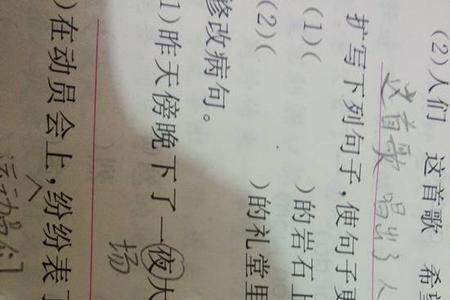 (2)人们 这首歌 希
这首歌 唱出了人
扩写下列句子,使句子
(1)( )的岩石上
(2)( )的礼堂里
修改病句。
1)昨天傍晚下了一夜大
场
)在动员会上,纷纷表
运动员们